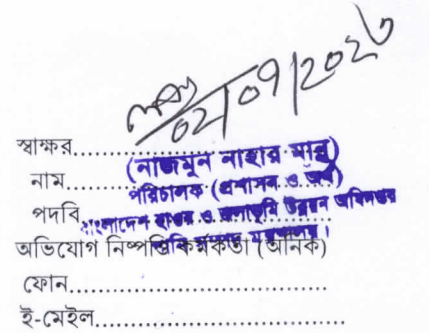 ০২/০৭/২০২৩
স্বাক্ষর..............................
(নাজমুন নাহার
নাম..............................
পরিচালক (প্রশাসন ও অর্থ)
পদবি..............................
বাংলাদেশ হাওর ও জলাভূমি উন্নয়ন অধিদপ্তর
অভিযোগ নিষ্পত্তি কর্মকর্তা (অনিক)
ফোন..............................
ই-মেইল..............................